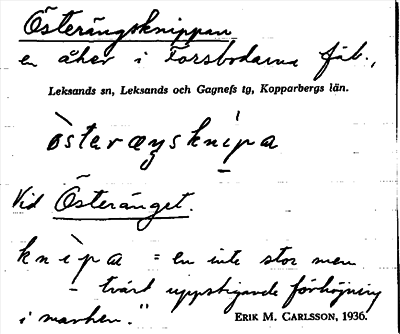 Österängsknippan
en åker i Forsbodarna fäb.,
Leksands sn, Leksands och Gagnefs tg, Kopparbergs län.
òsteræŋsknìpa
Vid Österänget.
knìpa = en inte stor men
tvärt uppstigande förhöjning
i marken."
ERIK M. CARLSSON, 1936.